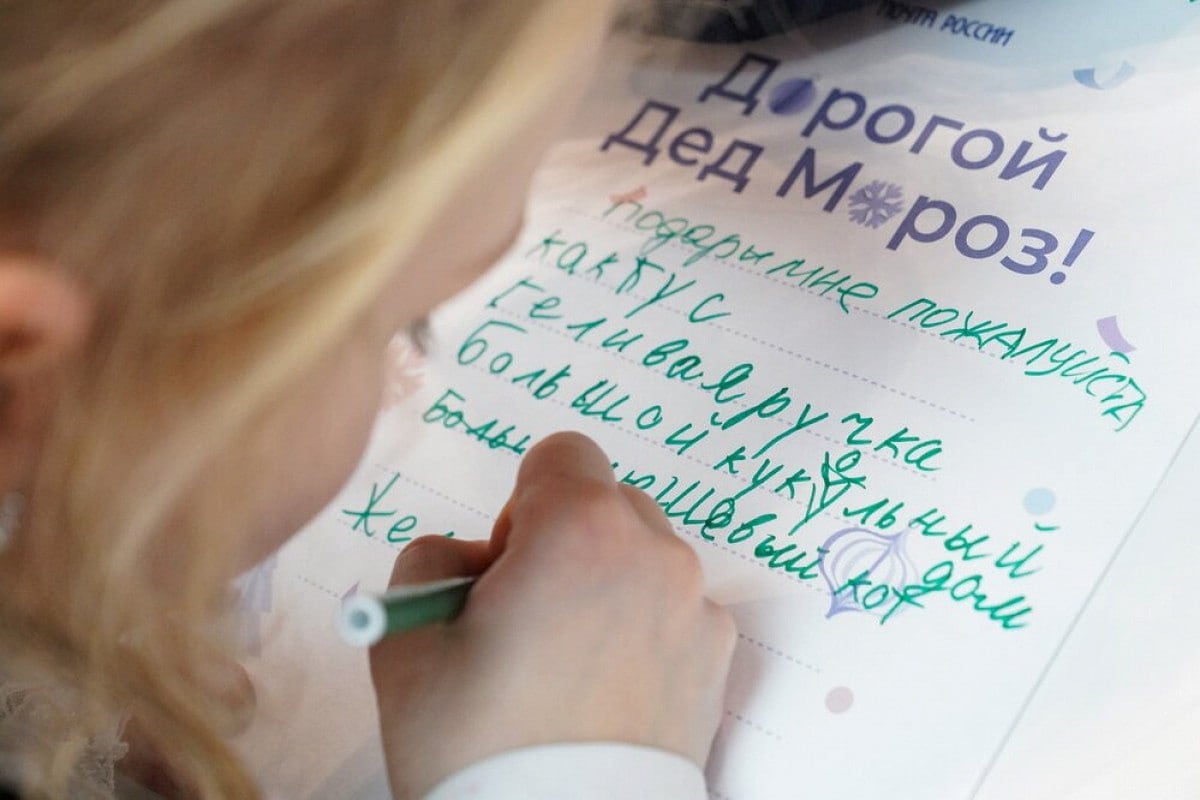 ПОЧТА РОССИИ
Дорогой
Дед Мороз!
подары мне пожалуйста
кактус
геливая ручка
Большой кукольный дом
кот
Же